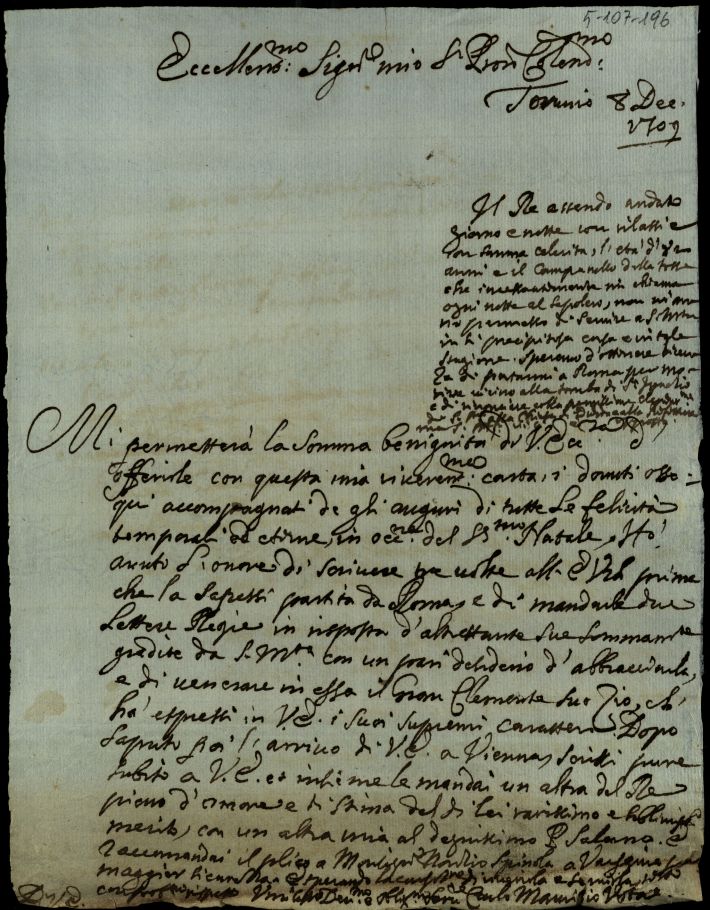 5-107-196
Eccellen.mo Sig.r mio S.r Pron Colend.mo
Torunio 8 Dec.
1709
Il Re essendo andato
giorno e notte con rilassi e
con summa celerità, l'età di
anni e il Campanello della tosse
che incessantemente mi chiama
ogni notte al sepolcro, non mi
permesso di servire a S. Mtà
in sì precipitosa corsa e in tale
stagione. Spero d'ottenere licenza
di portarmi a Roma per
vicino alla tomba di St. Ignatio
e di
Mi permetterà la somma benignità di V. Ecc.za d'
offerirle con questa mia riveren.me carta, i dovuti osse-
qui accompagnati da gli auguri di tutte le felicità
temporali ed eterne, in occ.ne del SS.mo Natale. Hò
avuto l'onore di scrivere tre volte all' E. V.ra prima
che la sapessi partita da Roma, e di mandarle due
Lettere Regie in risposta d'altrettante sue sommam.te
gradite da S. M.tà con un pari desiderio d'abbracciarla,
e di venerare in essa il Gran Clemente suo Zio, ch'
hà espressi in V. E. i suoi supremi caratteri. Dopo
saputo poi l'arrivo di V. E. a Vienna, scrissi pure
subito a V. E. et insieme le mandai un altra del Re
pieno d'amore e di stima del di lei rarissimo e
merito, con un altra mia al degnissimo P. Salerno. E
raccomandai il plico a Monsign.r Spinola a Varsavia
maggior sicurezza. E sperando
Carlo Mauritio Vota